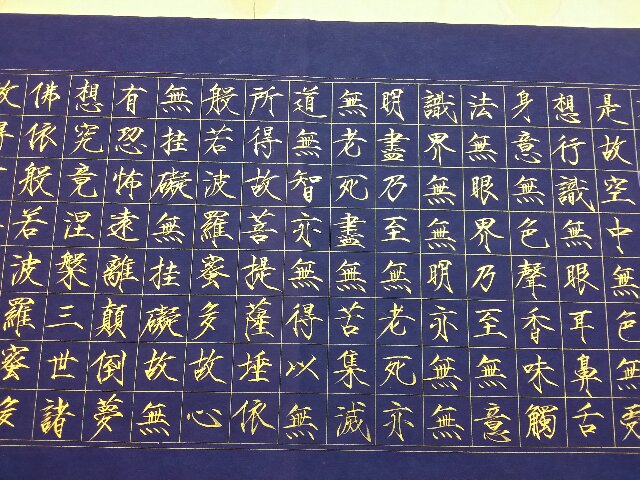 是故空中無色無受
想行識無眼耳鼻舌
身意無色聲香味觸
法無眼界乃至無意
識界無無明亦無無
明盡乃至無老死亦
無老死盡無苦集滅
道無智亦無得以無
所得故菩提薩埵依
般若波羅蜜多故心
無挂礙無挂礙故無
有恐怖遠離顛倒夢
想究竟涅槃三世諸
佛依般若波羅蜜多
故得